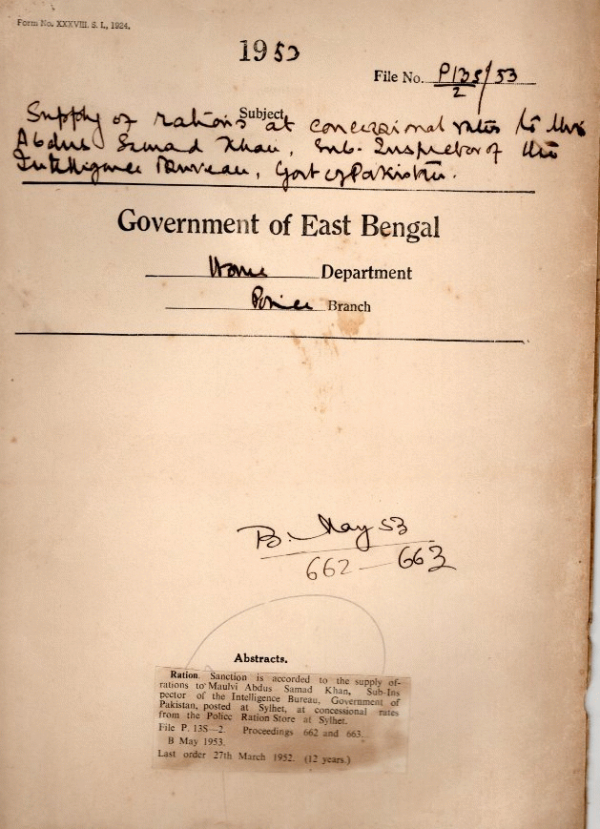 Form No. XXXVIII. S. I., 1924.
1953
File No. P13S/53
2
Subject
Supply of rations at concessional rates to Mvi
Abdus Samad Khan, Sub-Inspector of the
Intelligence Bureau, Govt of Pakistan.
Government of East Bengal
Home Department
Police Branch
B. May 53
662 — 663
Abstracts.
Ration Sanction is accorded to the supply of-
rations to Maulvi Abdus Samad Khan, Sub-Ins
pector of the Intelligence Bureau, Government of
Pakistan, posted at Sylhet, at concessional rates
from the Police Ration Store at Sylhet.
File P. 13S—2. Proceedings 662 and 663.
B May 1953.
Last order 27th March 1952. (12 years.)